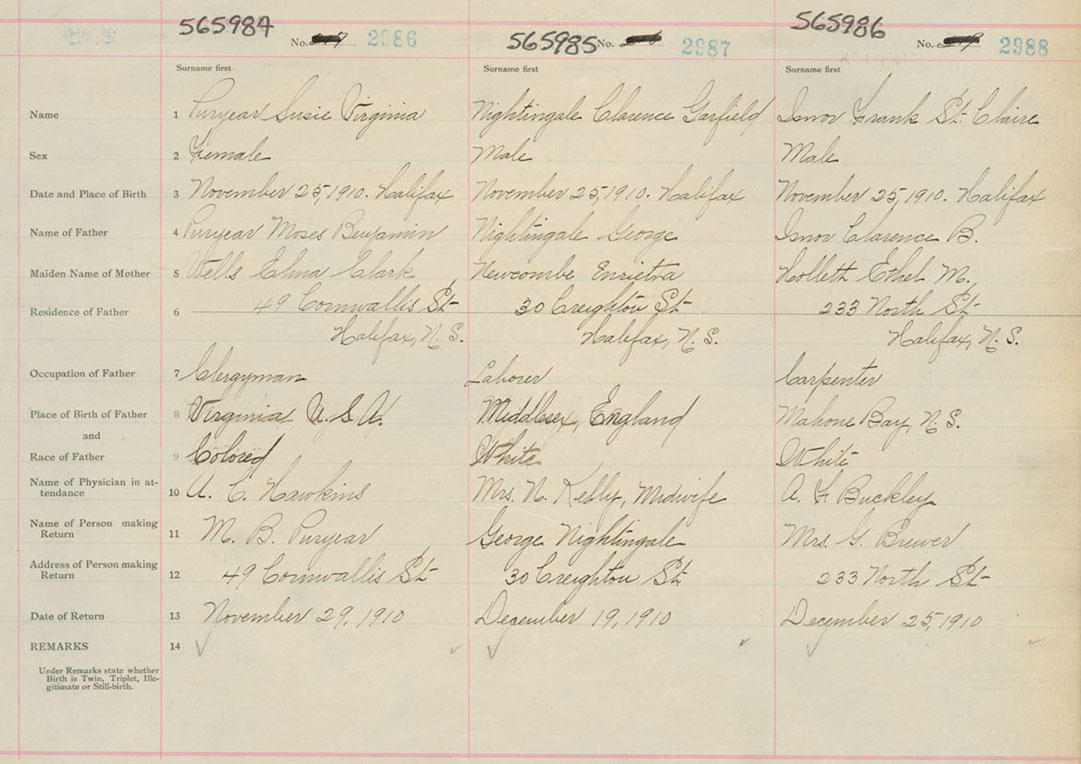 565984 565985 565986
No. 2986 No. 2987 No. 2988
Surname first Surname first Surname first
Name 1 Puryear Susie Virginia Nightingale Clarence Garfield Isnor Frank St. Claire
Sex 2 Female Male Male
Date and Place of Birth 3 November 25, 1910. Halifax November 25, 1910. Halifax November 25, 1910. Halifax
Name of Father 4 Puryear Moses Benjamin Nightingale George Isnor Clarence B.
Maiden Name of Mother 5 Wells Elma Clark Newcombe Enrietra Holleth Ethel M.
Residence of Father 6 49 Cornwallis St. 30 Creighton St. 233 North St.
Halifax, N. S. Halifax, N. S. Halifax, N. S.
Occupation of Father 7 Clergyman Laborer Carpenter
Place of Birth of Father 8 Virginia U. S. A. Middlesex, England Mahone Bay, N. S.
and
Race of Father 9 Colored White White
Name of Physician in at-
tendance 10 A. C. Hawkins Mrs. N. Kelly, Midwife A. F. Buckley
Name of Person making
Return 11 M. B. Puryear George Nightingale Mrs. G. Brewer
Address of Person making
Return 12 49 Cornwallis St. 30 Creighton St. 233 North St.
Date of Return 13 November 29, 1910 December 19, 1910 December 25, 1910
REMARKS 14
Under Remarks state whether
Birth is Twin, Triplet, Ille-
gitimate or Still-birth.